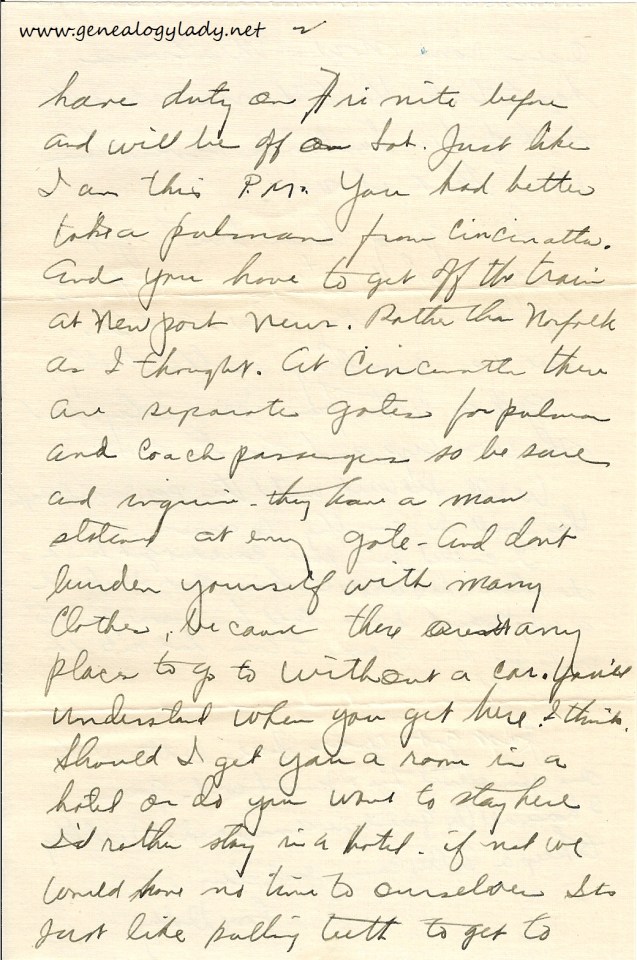 www.genealogylady.net 2
have duty on Fri nite before
and will be off on Sat. Just like
I am this P.M. You had better
take a pulman from Cincinatta.
And you have to get off the train
at New port News. Rather than Norfolk
as I thought. At Cincinatta there
are separate gates for pulman
and coach passengers so be sure
and inquire - they have a man
stationed at every gate - And don't
burden yourself with many
Clothes, because there aren't any
places to go to without a car. You'll
understand when you get here. I think.
Should I get you a room in a
hotel or do you want to stay here
I'd rather stay in a hotel. if not we
would have no time to ourselves Its
just like pulling teeth to get to